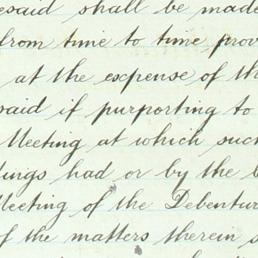 esaid shall be made
from time to time prov
at the expense of th
said if purporting to
Meeting at which suc
dings had or by the
Meeting of the Debentur
of the matters therein